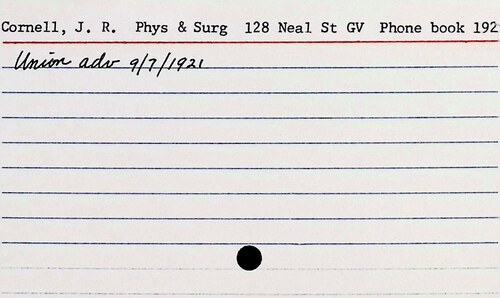 Cornell, J. R. Phys & Surg 128 Neal St GV Phone book 192
Union adv 9/7/1921